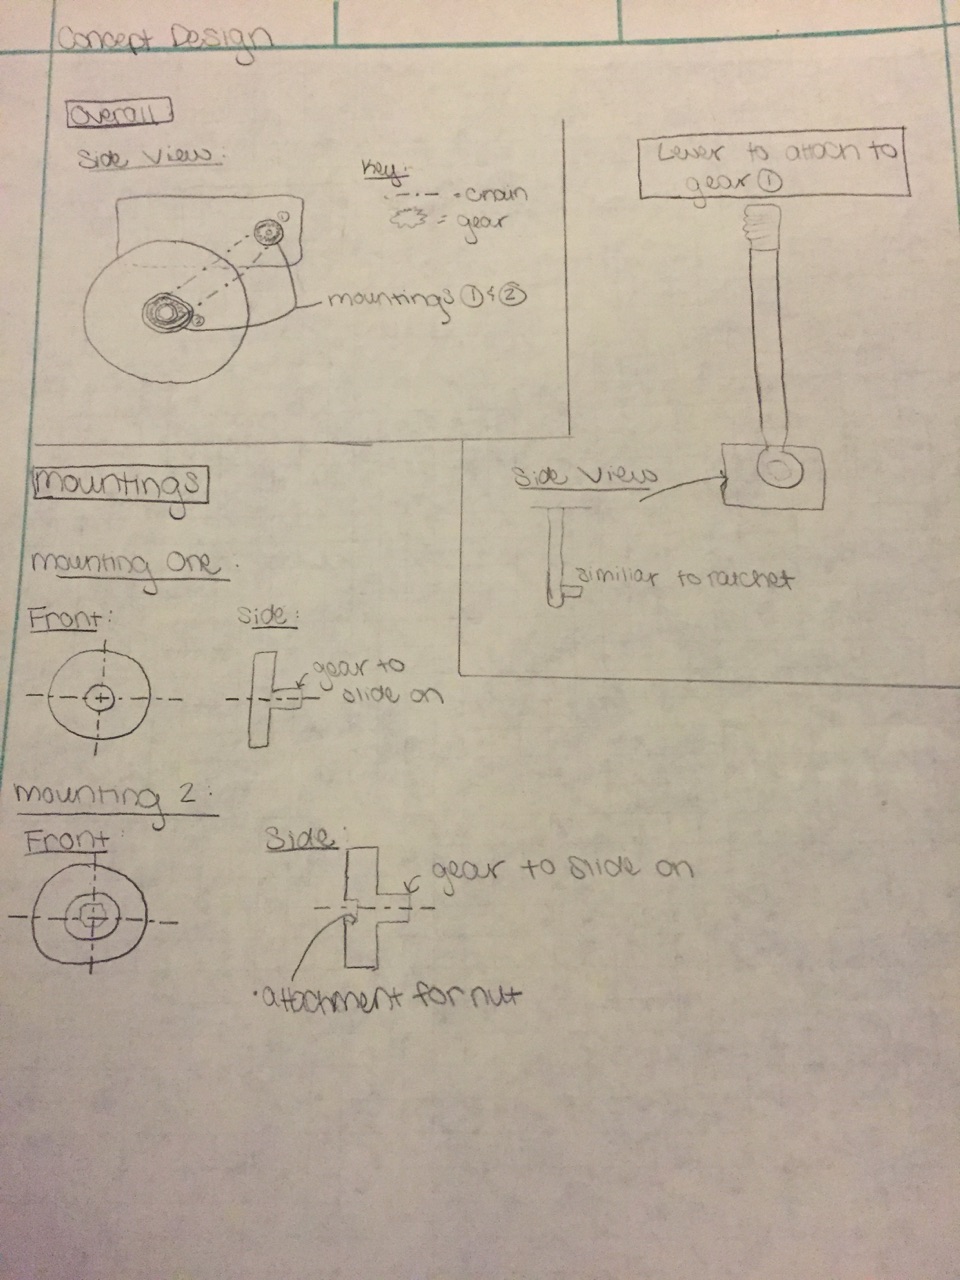 Concept Design
Overall
Side View:
Key:
= chain
= gear
①
②
mountings ① & ②
Lever to attach to
gear ①
Side View
similiar to ratchet
Mountings
Mounting One:
Front:
Side:
gear to
slide on
Mounting 2:
Front:
Side:
gear to slide on
attachment for nut